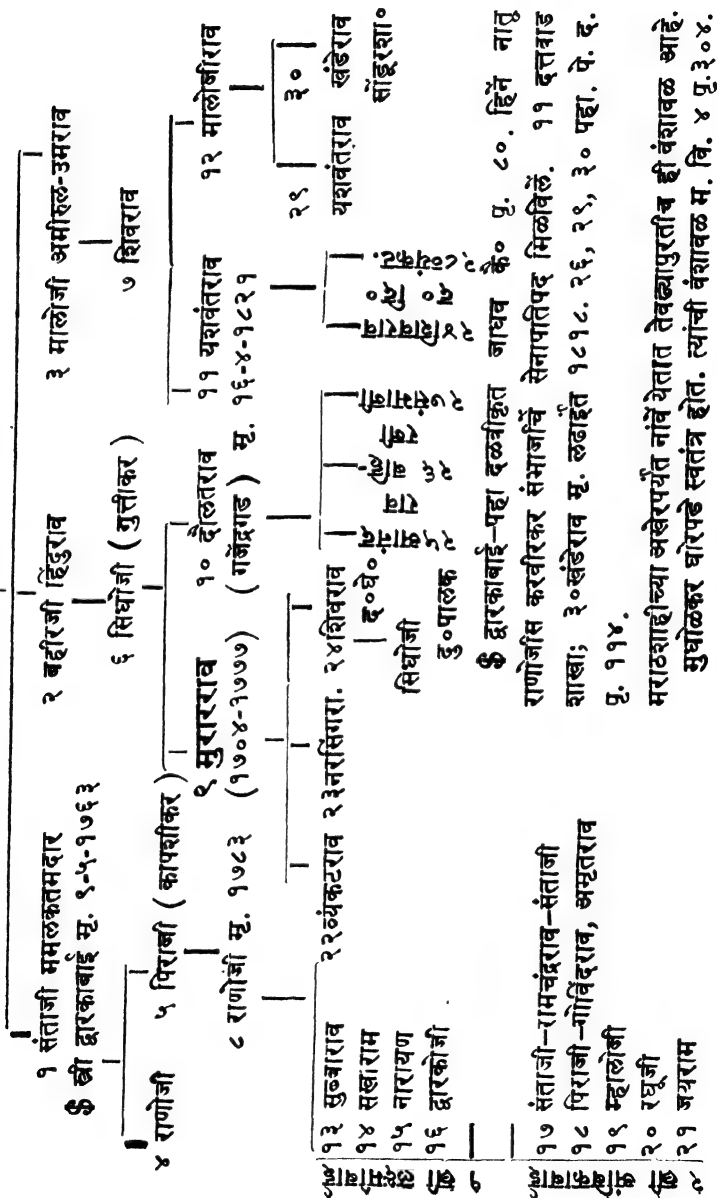 १ संताजी ममलकतमदार
$ स्त्री द्वारकाबाई मृ. ९-५-१७६३
२ बहीरजी हिंदुराव
३ मालोजी अमीरुल-उमराव
४ राणोजी ५ पिराजी ( कापशीकर )
६ सिधोजी ( गुत्तीकर )
७ शिवराव
८ राणोजी मृ. १७८३
९ मुरारराव
(१७०४-१७७७)
१० दौलतराव
( गजेंद्रगड )
११ यशवंतराव
मृ. १६-४-१८२१
१२ मालोजीराव
१३ सुब्बाराव
१४ सखाराम
१५ नारायण
१६ द्वारकोजी
१७ संताजी-रामचंद्रराव-संताजी
१८ पिराजी-गोविंदराव, अमृतराव
१९ म्हालोजी
२० रघूजी
२१ जयराम
२२व्यंकटराव २३नरसिंगरा. २४शिवराव
द०घे०
सिधोजी
दु०पालक
२७संभाजी
२४शिवराव
२८व्यंकट.
२९
यशवंतराव
३०
खंडेराव
सोंडूरशा०
$ द्वारकाबाई-पहा दळवीकृत जाधव कै० पृ. ८०. हिनें नातु
राणोजीस करवीरकर संभाजीचें सेनापतिपद मिळविलें. ११ दत्तवाड
शाखा; ३०खंडेराव मृ. लढाईत १८१८. २६, २९, ३० पहा. पे. द.
पृ. ११४.
मराठशाहीच्या अखेरपर्यंत नांवें येतात तेवढ्यापुरतीच ही वंशावळ आहे.
मुधोळकर घोरपडे स्वतंत्र होत. त्यांची वंशावळ म. वि. ४ पृ.३०४.